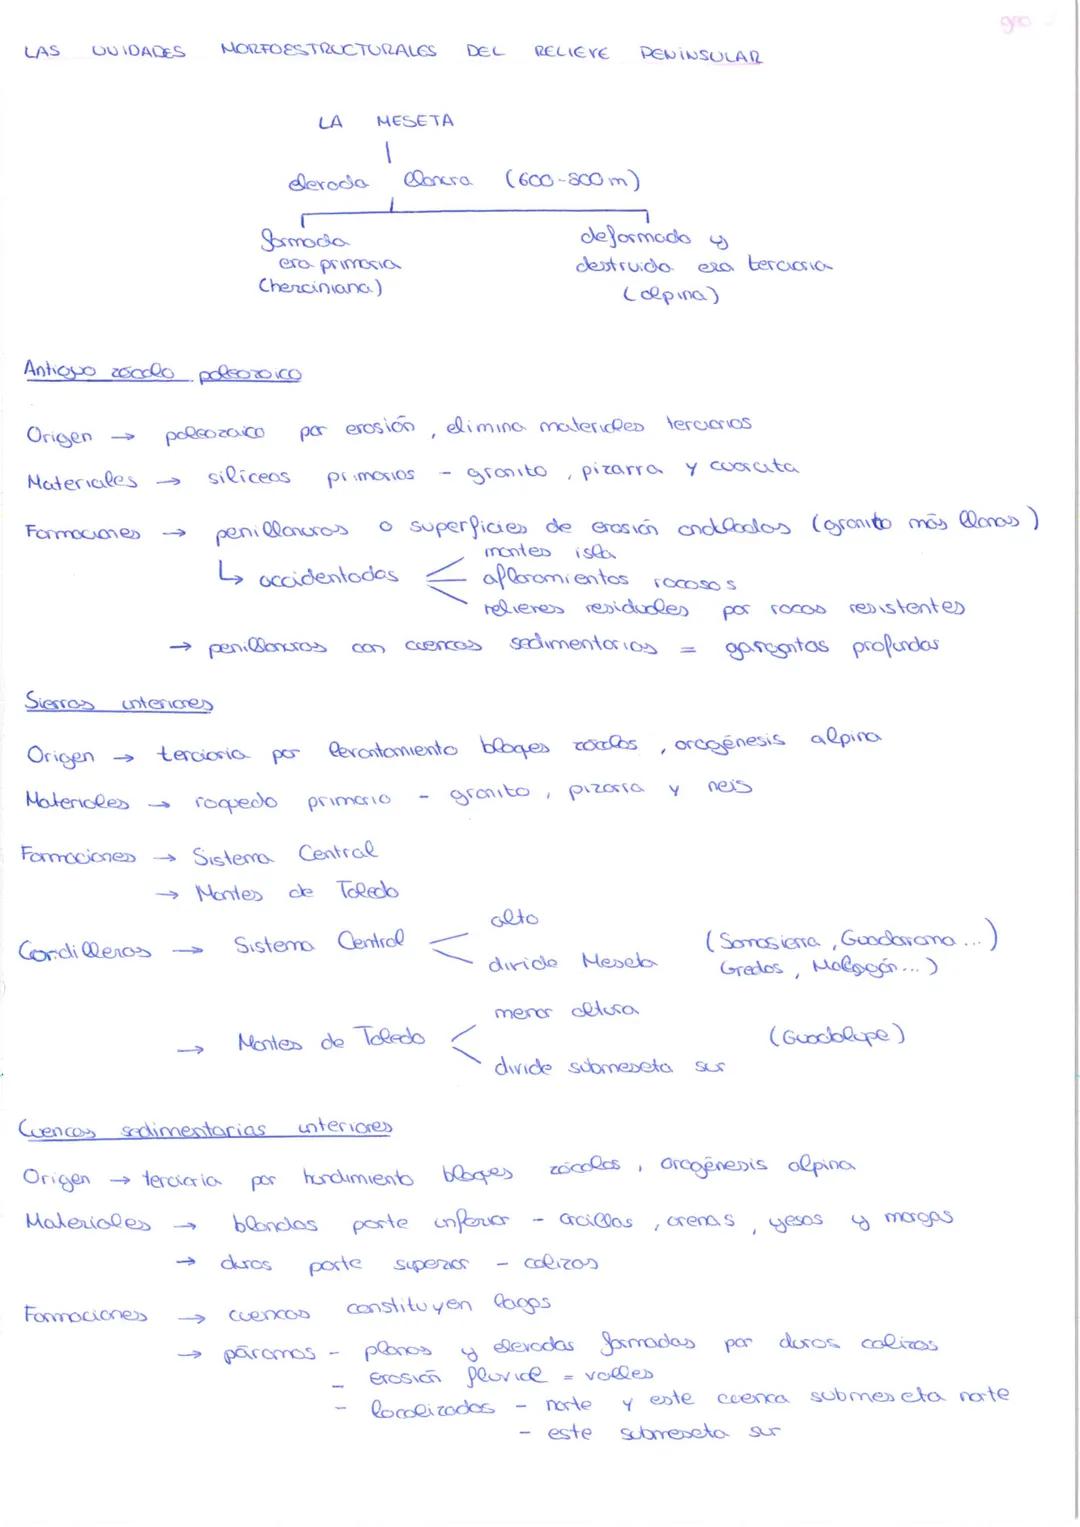 geo
LAS UNIDADES MORFOESTRUCTURALES DEL RELIEVE PENINSULAR
LA MESETA
elevada llanura (600-800 m)
formada
era primaria
(herciniana)
deformado y
destruida era terciaria
(alpina)
Antiguo zócalo paleozoico
Origen → paleozoico por erosión, elimina materiales terciarios
Materiales → silíceos primarios - granito, pizarra y cuarcita
Formaciones → penillanuras o superficies de erosión onduladas (granito más llanas)
↳ accidentadas
montes isla
afloramientos rocosos
relieves residuales por rocas resistentes
→ penillanuras con cuencas sedimentarias = gargantas profundas
Sierras interiores
Origen → terciaria por levantamiento bloques zócalos, orogénesis alpina
Materiales → roquedo primario - granito, pizarra y neis
Formaciones → Sistema Central
→ Montes de Toledo
Cordilleras → Sistema Central
alto
divide Meseta
(Somosierra, Guadarrama...)
Gredos, Malagón...)
→ Montes de Toledo
menor altura
divide submeseta sur
(Guadalupe)
Cuencas sedimentarias interiores
Origen → terciaria por hundimiento bloques zócalos, orogénesis alpina
Materiales → blandos parte inferior - arcillas, arenas, yesos y margas
→ duros parte superior - calizas
Formaciones → cuencas constituyen lagos
→ páramos - planos y elevadas formadas por duros calizas
- erosión fluvial = valles
- localizados - norte y este cuenca submeseta norte
- este submeseta sur